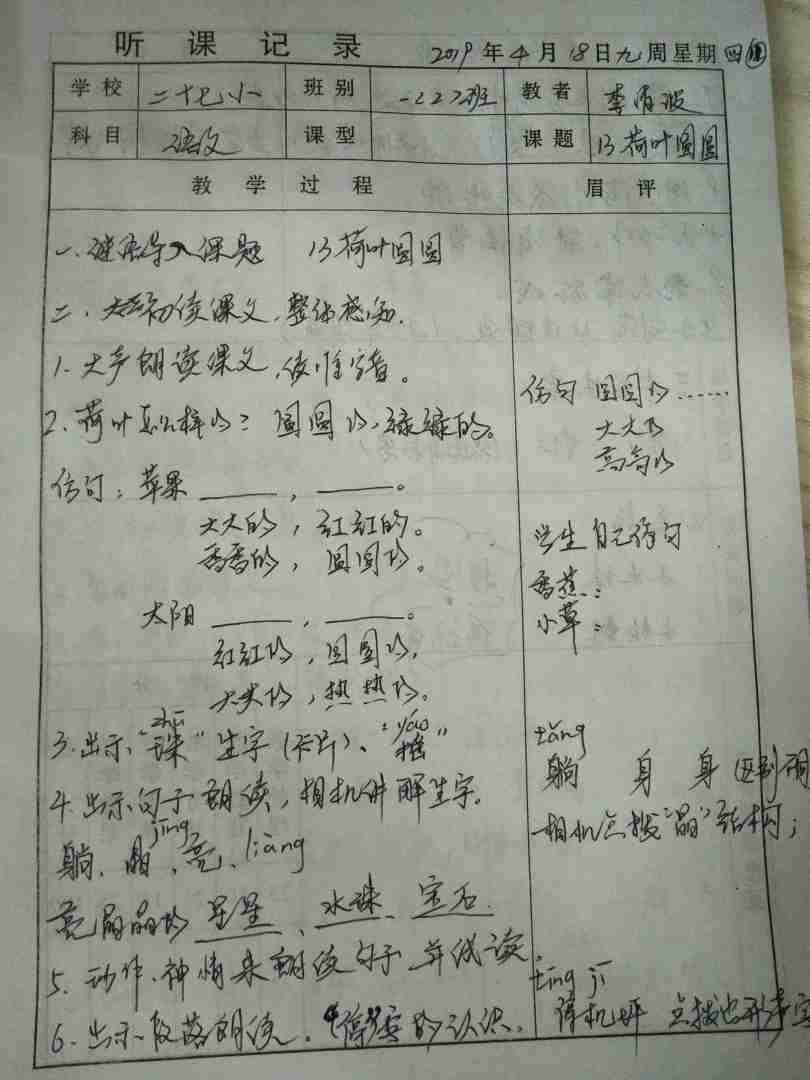 听课记录 2019年4月18日九周星期四
学校 二十七小 班别 一(2)班 教者 李
科目 语文 课型 课题 13荷叶圆圆
教学过程 眉评
一、谜语导入课题 13荷叶圆圆
二、初读课文,整体感知.
1.大声朗读课文,读准字音。
2.荷叶怎么样的?圆圆的,绿绿的。
仿句:苹果 , 。
大大的,红红的。
香香的,圆圆的。
太阳 , 。
红红的,圆圆的,
大大的,热热的。
3.出示"珠"生字(卡片)、"摇"
zhū yáo
4.出示句子朗读,相机讲解生字。
躺、晶、亮、liàng
jīng
亮晶晶的 星星、水珠、宝石.
5.动作、神情来朗读句子 读.
6.出示段落朗读. 的认识.
仿句 圆圆的……
大大的
高高的
学生自己仿句
香蕉:
小草:
tǎng
躺 身 身 区别
相机点拨"晶"结构;
tíng jī
停机坪 点拨